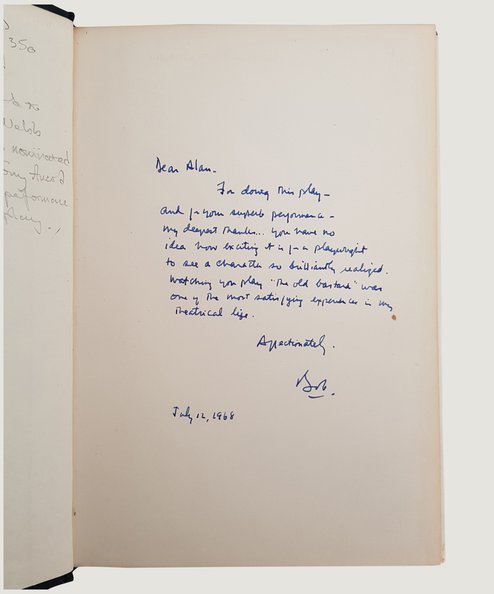 350
Webb
nominated
Tony Award
performance
play.
Dear Alan-
For doing this play-
and for your superb performance-
my deepest thanks... you have no
idea how exciting it is for a playwright
to see a character so brilliantly realized.
Watching you play "the old bastard" was
one of the most satisfying experiences in my
theatrical life.
Affectionately,
Bob.
July 12, 1968